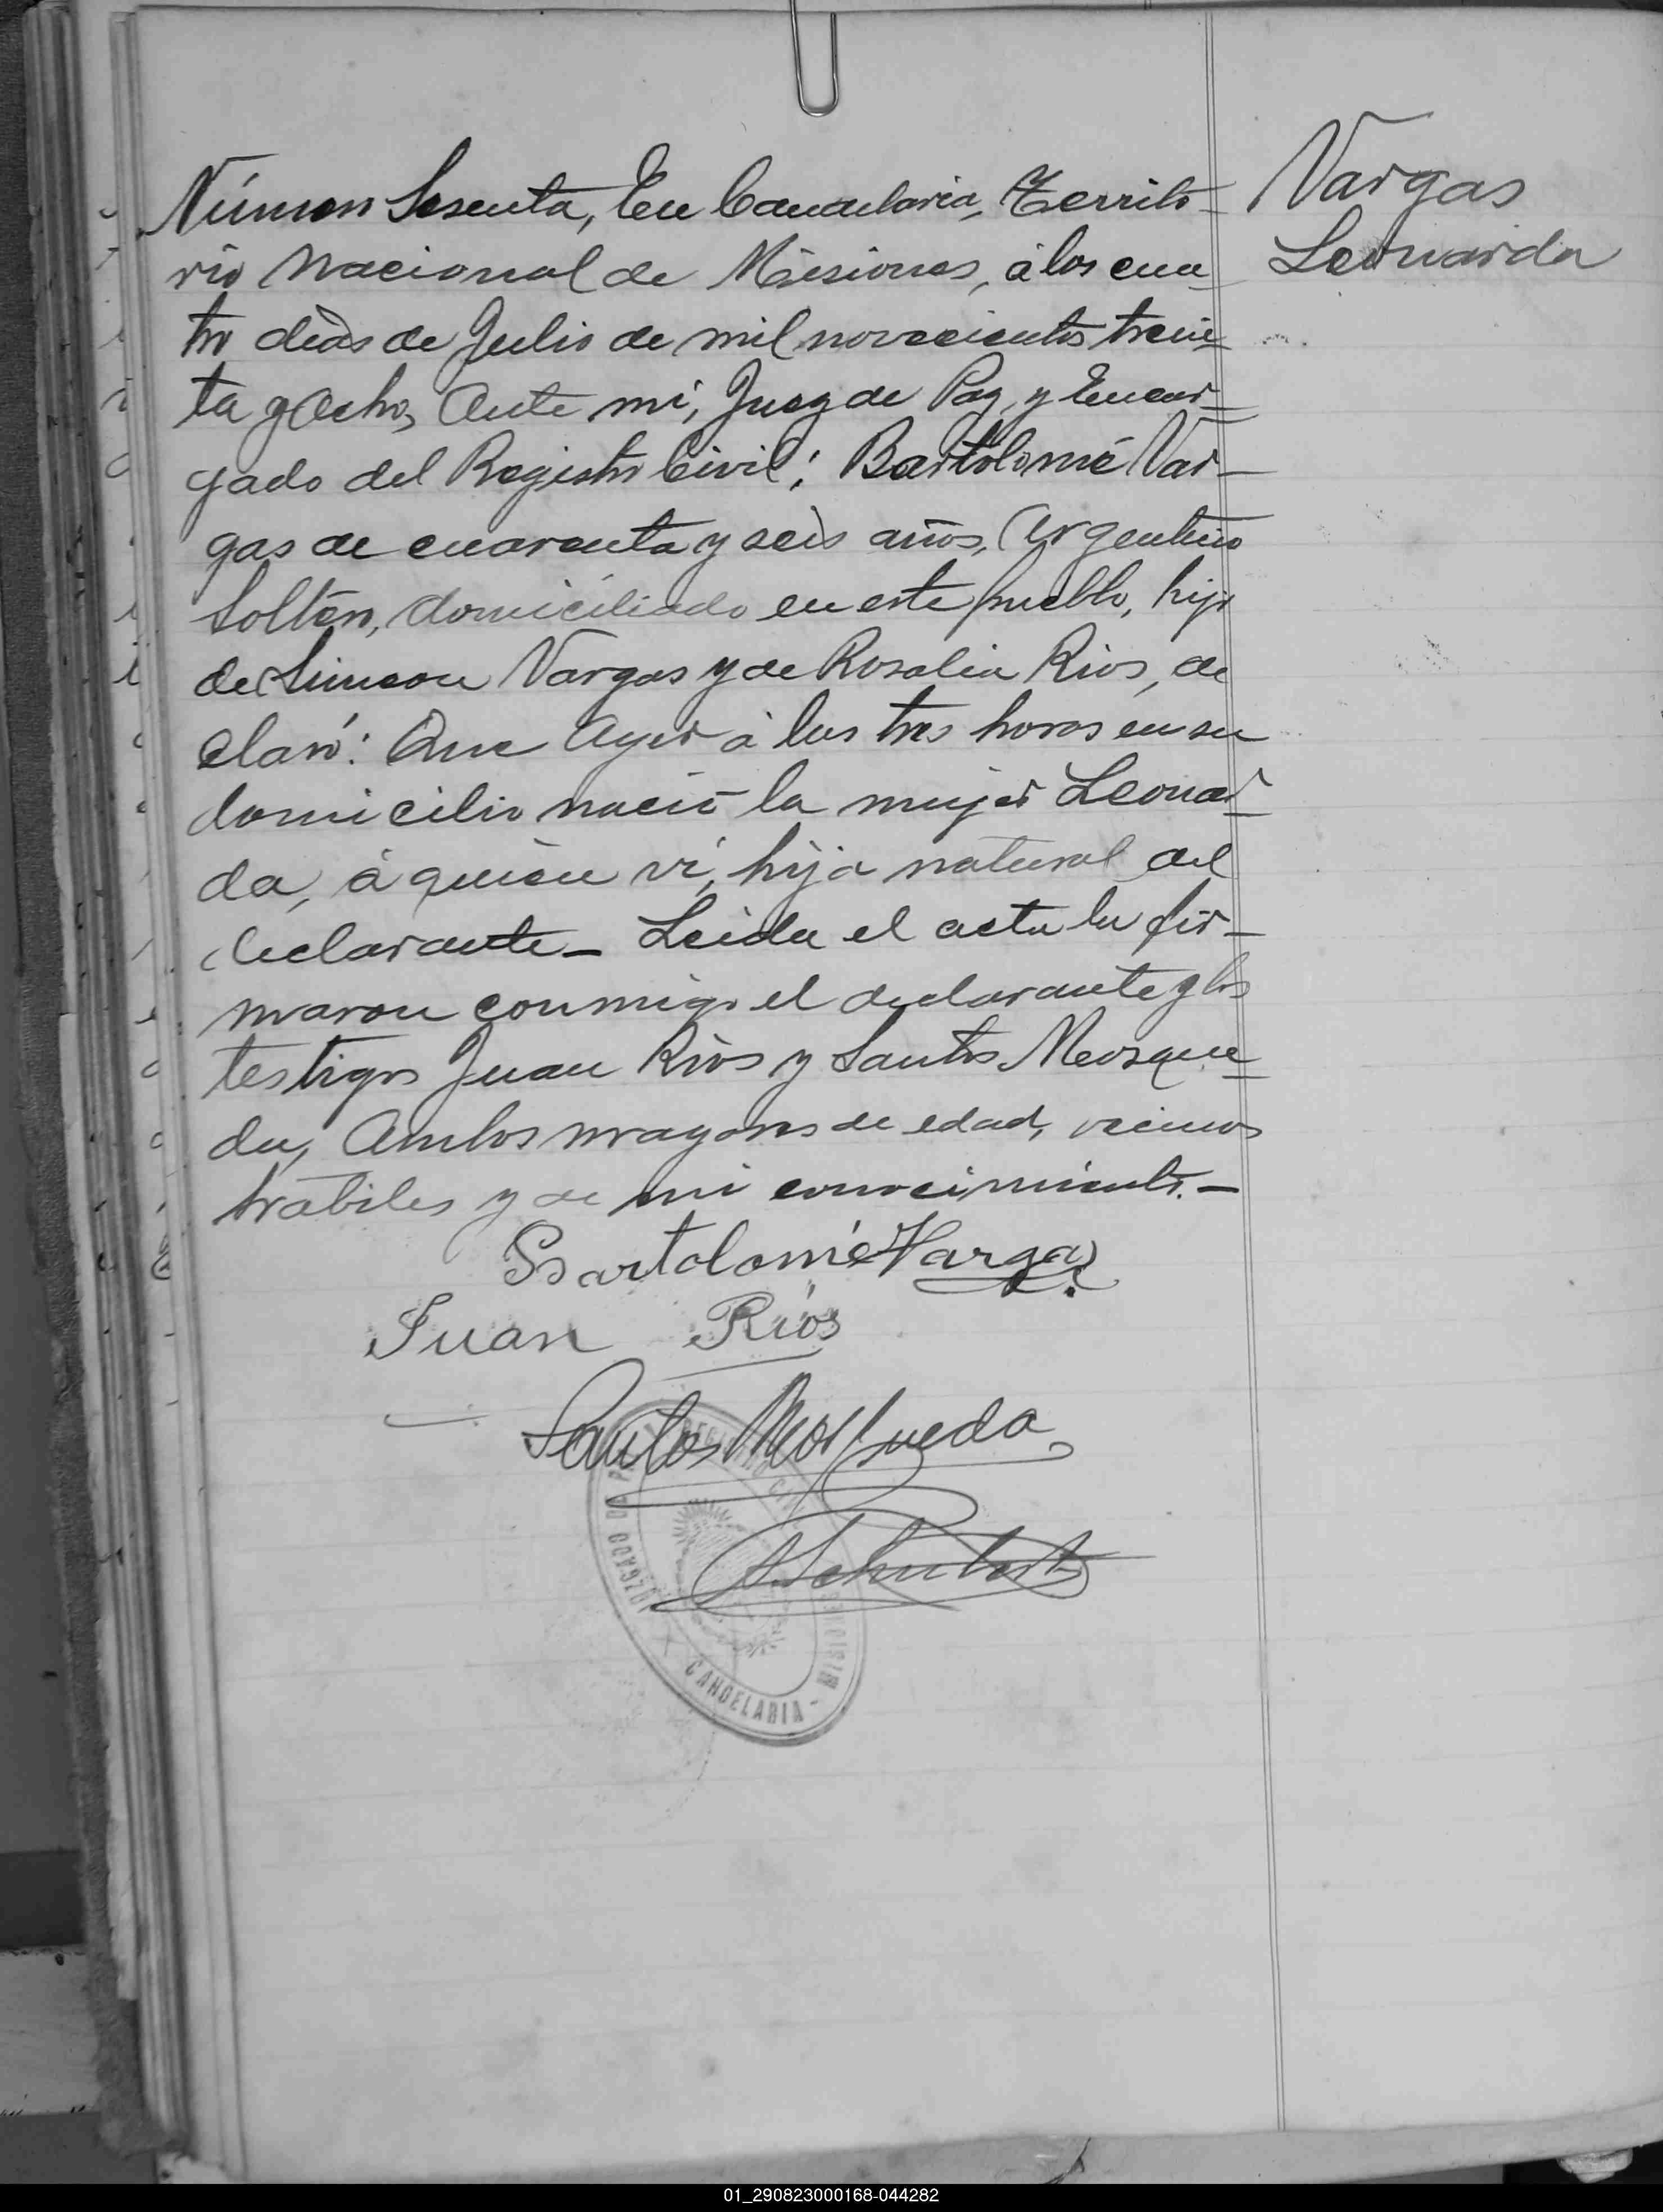 Vargas
Leonarda
Número Sesenta, En Candelaria, Territo-
rio Nacional de Misiones, á los cua-
tro dias de Julio de mil novecientos trein-
ta y Ocho, Ante mi, Juez de Paz, y Encar-
gado del Registro Civil; Bartolomé Var-
gas de cuarenta y seis años, Argentino
Soltero, domiciliado en este pueblo, hijo
de Simeon Vargas y de Rosalia Rios, de
claró: Que Ayer á las tres horas en su
domicilio nació la mujer Leonar-
da, á quien vi, hija natural del
declarante_ Leida el acta la fir-
maron conmigo el declarante y los
testigos Juan Rios y Santos Mosque-
da, Ambos mayores de edad, vecinos
hábiles y de mi conocimiento.-
Bartolomé Vargas
Juan Ríos
Santos Mosqueda
Schubert
JUZGADO DE PAZ Y REGISTRO CIVIL
CANDELARIA - MISIONES
01_290823000168-044282